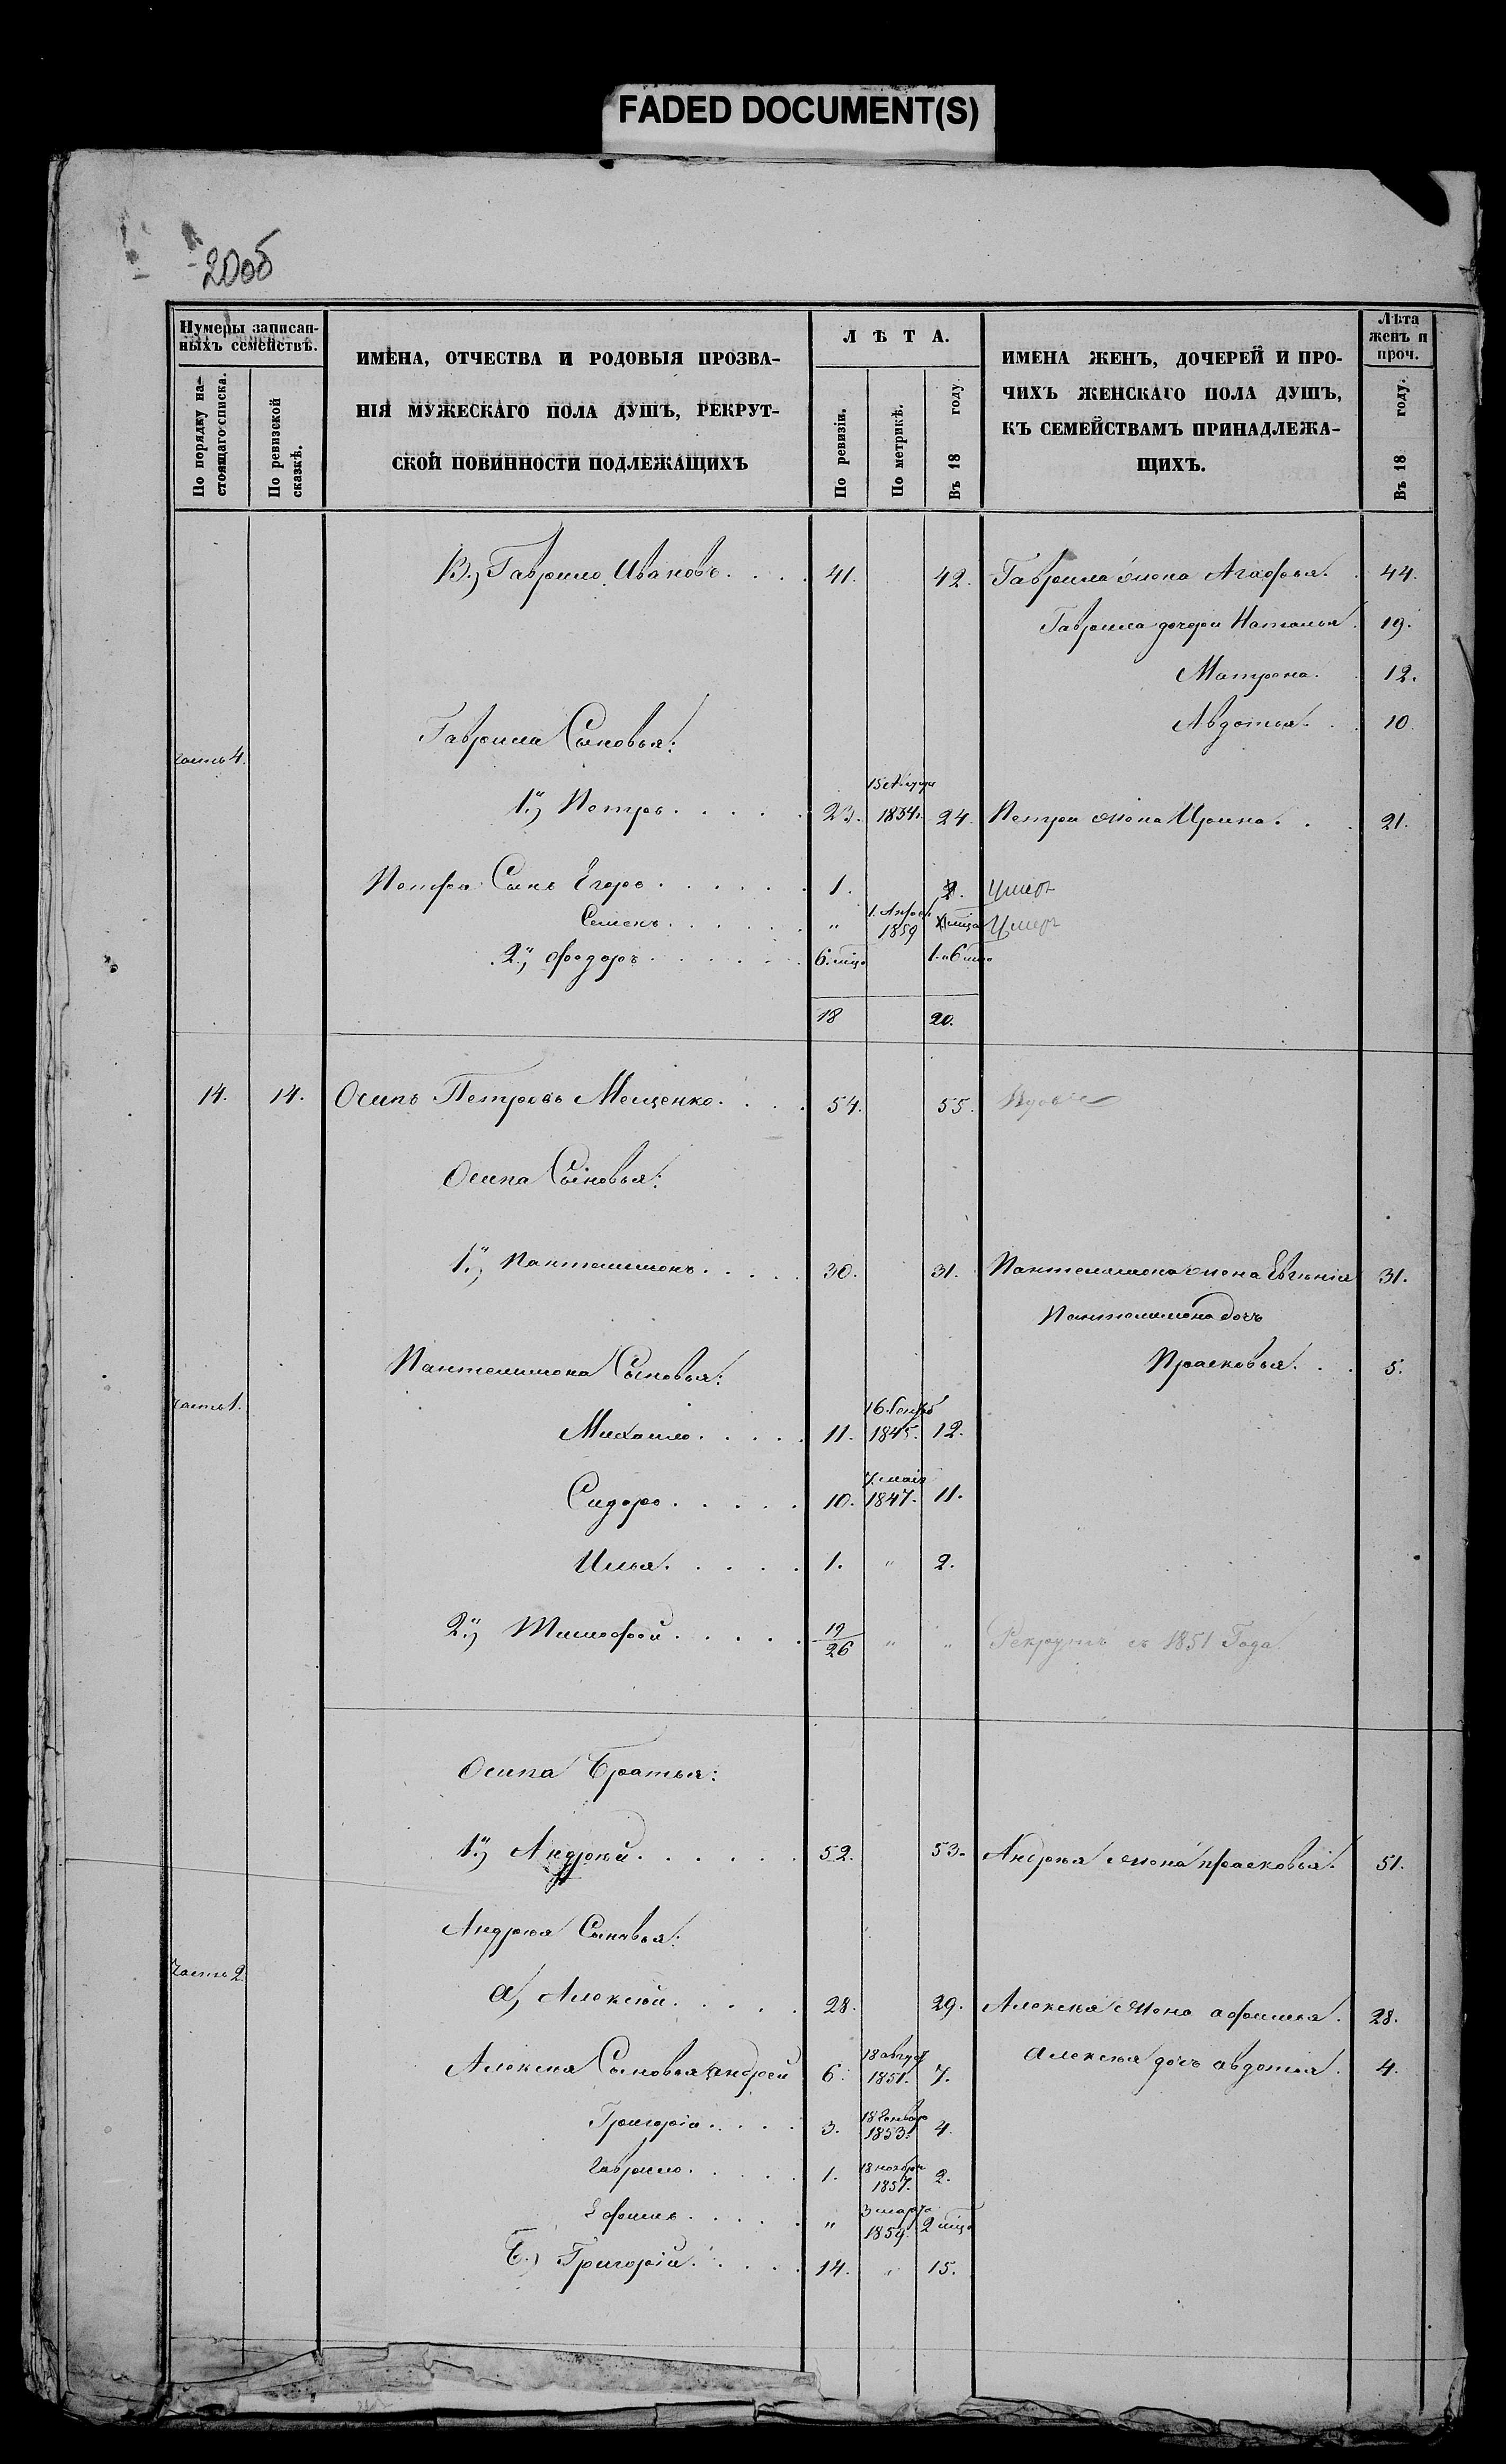 FADED DOCUMENT(S)
20об
Нумеры записан-
ныхъ семействъ.
По порядку на-
стоящаго списка.
По ревизской
сказкѣ.
ИМЕНА, ОТЧЕСТВА И РОДОВЫЯ ПРОЗВА-
НІЯ МУЖЕСКАГО ПОЛА ДУШЪ, РЕКРУТ-
СКОЙ ПОВИННОСТИ ПОДЛЕЖАЩИХЪ
ЛѢТА.
По ревизіи.
По метрикѣ.
Въ 18 году
ИМЕНА ЖЕНЪ, ДОЧЕРЕЙ И ПРО-
ЧИХЪ ЖЕНСКАГО ПОЛА ДУШЪ,
КЪ СЕМЕЙСТВАМЪ ПРИНАДЛЕЖА-
ЩИХЪ.
Лѣта
женъ и
проч.
Въ 18 году.
В.) Гаврило Ивановъ. 41. 42. Гаврила жена Агафья. 44.
Гаврила дочери Наталья. 19.
Матрона. 12.
Авдотья. 10.
Гаврила Сыновья:
часть 4.
1й) Петръ. 23. 1834. 24. Петра жена Ирина. 21.
Петра Сынъ Егоръ. 1. 2. Умеръ
Семенъ. " 1. 1859 Умеръ
2й) Федоръ. 6. мцо 1. и 6 мцо
18 20.
14. 14. Осипъ Петровъ Мещенко. 54. 55.
Осипа Сыновья:
1й) Пантелимонъ. 30. 31. Пантелимона жена Евгенія 31.
Пантелимона дочь
Прасковья. 5.
Пантелимона Сыновья:
часть 1.
Михаило. 11. 16. 1845. 12.
Сидоръ. 10. 7. маія 1847. 11.
Илья. 1. " 2.
2й) Тимофей. 19/26 " " Рекрутъ съ 1851 Года.
Осипа Братья:
1й) Андрей. 52. 53. Андрея жена Прасковья. 51.
Андрея Сыновья:
Часть 2.
а) Алексѣй. 28. 29. Алексѣя жена Афимья. 28.
Алексѣя Сыновья Андрей 6. 18 август 1851. 7. Алексѣя дочь Авдотья. 4.
Григорій. 3. 18 Генваря 1853. 4.
Гаврило. 1. 18 ноября 1857. 2.
Ефимъ. " 3 марта 1859. 2 мцо
Б.) Григорій. 14. " 15.